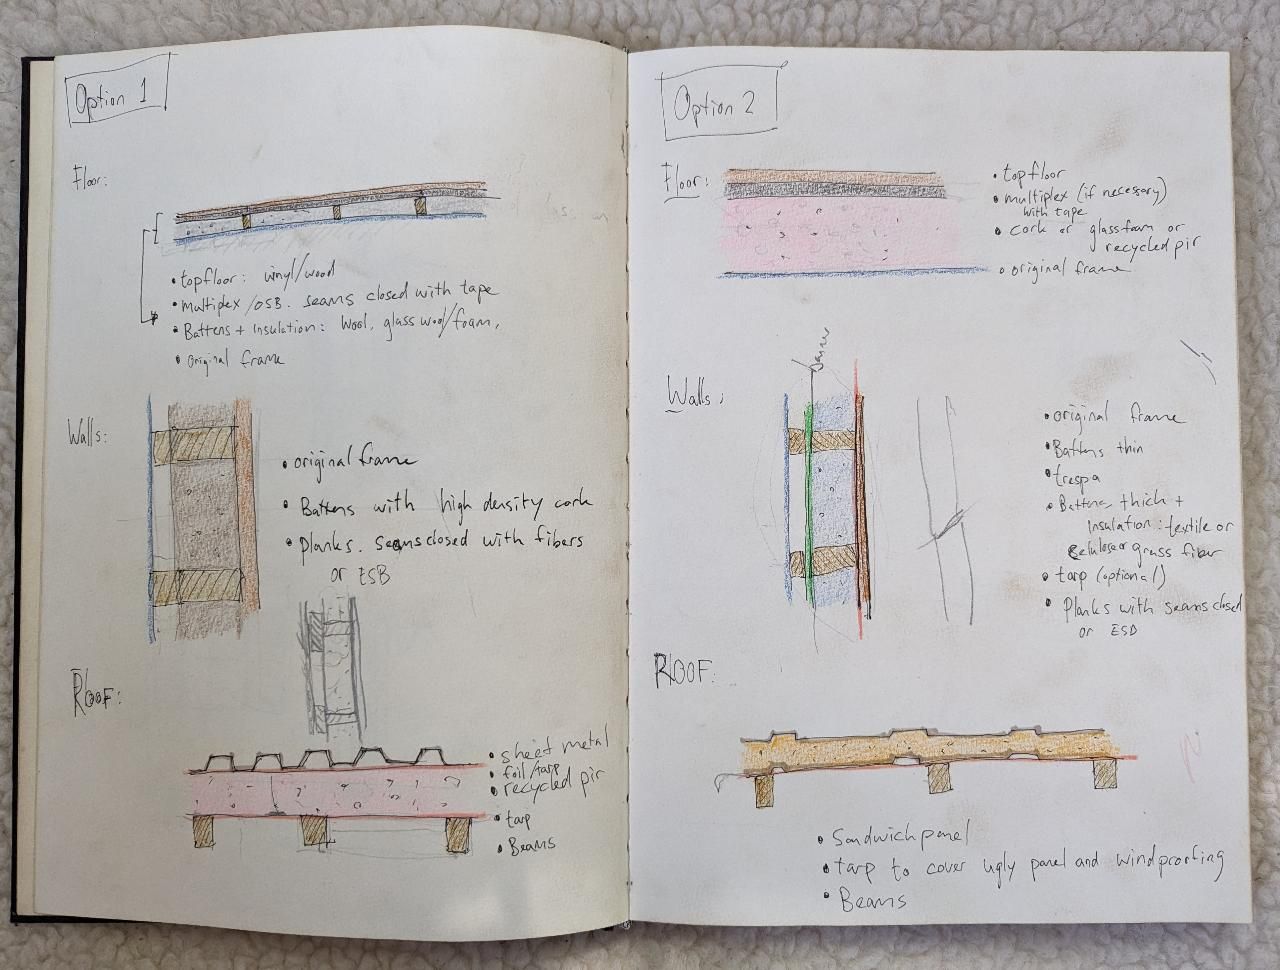 Option 1
Floor:
• topfloor: vinyl/wood
• multiplex/OSB. seams closed with tape
• Battens + insulation: Wool, glasswool/foam,
• original frame
Walls:
• original frame
• Battens with high density cork
• Planks. seams closed with fibers
or ESB
ROOF:
• sheet metal
• foil/tarp
• recycled pir
• tarp
• Beams
Option 2
Floor:
• topfloor
• multiplex (if necessary)
with tape
• cork or glassfoam or
recycled pir
• original frame
Walls:
• original frame
• Battens thin
• trespa
• Battens thick +
insulation: textile or
celulose or grass fiber
• tarp (optional)
• Planks with seams closed
or ESB
ROOF:
• Sandwichpanel
• tarp to cover ugly panel and windproofing
• Beams